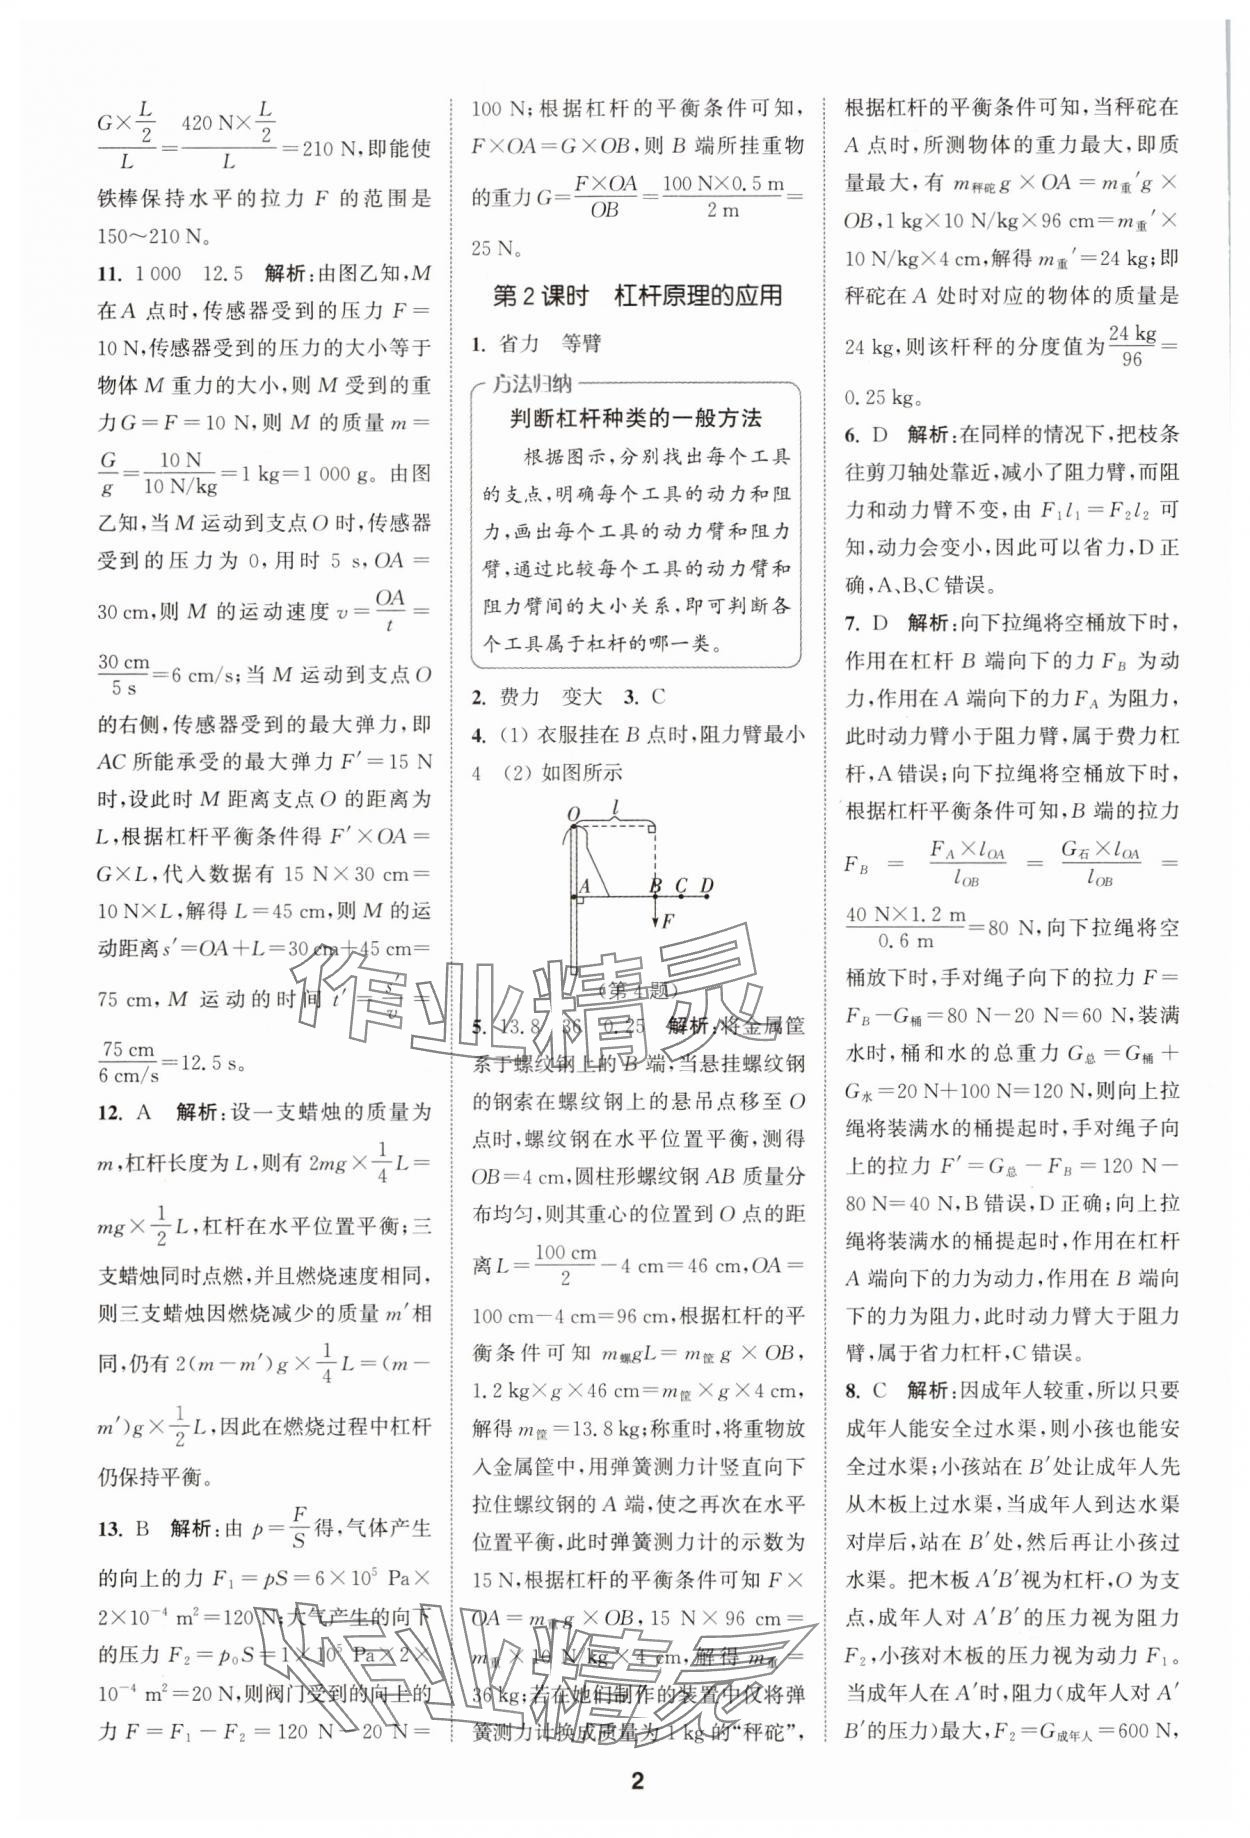 G×L/2 / L = 420 N×L/2 / L =210 N,即能使
铁棒保持水平的拉力 F 的范围是
150～210 N。
11. 1 000  12.5  解析:由图乙知,M
在A 点时,传感器受到的压力 F=
10 N,传感器受到的压力的大小等于
物体 M 重力的大小,则 M 受到的重
力G=F=10 N,则 M 的质量 m=
G/g=10 N/10 N/kg=1 kg=1 000 g。由图
乙知,当M运动到支点O时,传感器
受到的压力为 0,用时 5 s,OA=
30 cm,则 M 的运动速度 v=OA/t=
30 cm/5 s=6 cm/s;当 M 运动到支点O
的右侧,传感器受到的最大弹力,即
AC 所能承受的最大弹力 F′=15 N
时,设此时 M 距离支点 O 的距离为
L,根据杠杆平衡条件得 F′×OA=
G×L,代入数据有 15 N×30 cm=
10 N×L,解得 L=45 cm,则 M 的运
动距离s′=OA+L=30 cm+45 cm=
75 cm,M 运动的时间 t′=s′/v=
75 cm/6 cm/s=12.5 s。
12. A  解析:设一支蜡烛的质量为
m,杠杆长度为 L,则有 2mg×1/4L=
mg×1/2L,杠杆在水平位置平衡;三
支蜡烛同时点燃,并且燃烧速度相同,
则三支蜡烛因燃烧减少的质量 m′相
同,仍有 2(m-m′)g×1/4L=(m-
m′)g×1/2L,因此在燃烧过程中杠杆
仍保持平衡。
13. B  解析:由 p=F/S得,气体产生
的向上的力 F₁=pS=6×10⁵ Pa×
2×10⁻⁴ m²=120 N;大气产生的向下
的压力 F₂=p₀S=1×10⁵ Pa×2×
10⁻⁴ m²=20 N,则阀门受到的向上的
力 F=F₁-F₂=120 N-20 N=
100 N;根据杠杆的平衡条件可知,
F×OA=G×OB,则 B 端所挂重物
的重力G=F×OA/OB=100 N×0.5 m/2 m=
25 N。
第2课时  杠杆原理的应用
1. 省力  等臂
方法归纳
判断杠杆种类的一般方法
根据图示,分别找出每个工具
的支点,明确每个工具的动力和阻
力,画出每个工具的动力臂和阻力
臂,通过比较每个工具的动力臂和
阻力臂间的大小关系,即可判断各
个工具属于杠杆的哪一类。
2. 费力  变大  3. C
4. (1) 衣服挂在 B 点时,阻力臂最小
4  (2) 如图所示
O l
A B C D
F
(第 4 题)
5. 13.8  36  0.25  解析:将金属筐
系于螺纹钢上的 B 端,当悬挂螺纹钢
的钢索在螺纹钢上的悬吊点移至 O
点时,螺纹钢在水平位置平衡,测得
OB=4 cm,圆柱形螺纹钢 AB 质量分
布均匀,则其重心的位置到 O 点的距
离L=100 cm/2-4 cm=46 cm,OA=
100 cm-4 cm=96 cm,根据杠杆的平
衡条件可知 m螺gL=m筐g×OB,
1.2 kg×g×46 cm=m筐×g×4 cm,
解得 m筐=13.8 kg;称重时,将重物放
入金属筐中,用弹簧测力计竖直向下
拉住螺纹钢的 A 端,使之再次在水平
位置平衡,此时弹簧测力计的示数为
15 N,根据杠杆的平衡条件可知 F×
OA=m重g×OB,15 N×96 cm=
m重×10 N/kg×4 cm,解得 m重=
36 kg;若在她们制作的装置中仅将弹
簧测力计换成质量为 1 kg 的“秤砣”,
根据杠杆的平衡条件可知,当秤砣在
A 点时,所测物体的重力最大,即质
量最大,有 m秤砣g×OA=m重′g×
OB,1 kg×10 N/kg×96 cm=m重′×
10 N/kg×4 cm,解得 m重′=24 kg;即
秤砣在 A 处时对应的物体的质量是
24 kg,则该杆秤的分度值为24 kg/96=
0.25 kg。
6. D  解析:在同样的情况下,把枝条
往剪刀轴处靠近,减小了阻力臂,而阻
力和动力臂不变,由 F₁l₁=F₂l₂ 可
知,动力会变小,因此可以省力,D 正
确,A、B、C 错误。
7. D  解析:向下拉绳将空桶放下时,
作用在杠杆 B 端向下的力 F_B 为动
力,作用在 A 端向下的力 F_A 为阻力,
此时动力臂小于阻力臂,属于费力杠
杆,A 错误;向下拉绳将空桶放下时,
根据杠杆平衡条件可知,B 端的拉力
F_B = F_A×l_OA/l_OB = G石×l_OA/l_OB =
40 N×1.2 m/0.6 m=80 N,向下拉绳将空
桶放下时,手对绳子向下的拉力 F=
F_B-G桶=80 N-20 N=60 N,装满
水时,桶和水的总重力 G总=G桶+
G水=20 N+100 N=120 N,则向上拉
绳将装满水的桶提起时,手对绳子向
上的拉力 F′=G总-F_B=120 N-
80 N=40 N,B 错误,D 正确;向上拉
绳将装满水的桶提起时,作用在杠杆
A 端向下的力为动力,作用在 B 端向
下的力为阻力,此时动力臂大于阻力
臂,属于省力杠杆,C 错误。
8. C  解析:因成年人较重,所以只要
成年人能安全过水渠,则小孩也能安
全过水渠;小孩站在B′处让成年人先
从木板上过水渠,当成年人到达水渠
对岸后,站在 B′处,然后再让小孩过
水渠。把木板 A′B′视为杠杆,O 为支
点,成年人对 A′B′的压力视为阻力
F₂,小孩对木板的压力视为动力 F₁。
当成年人在A′时,阻力(成年人对 A′
B′的压力)最大,F₂=G成年人=600 N,
作业精灵
作业精灵
2